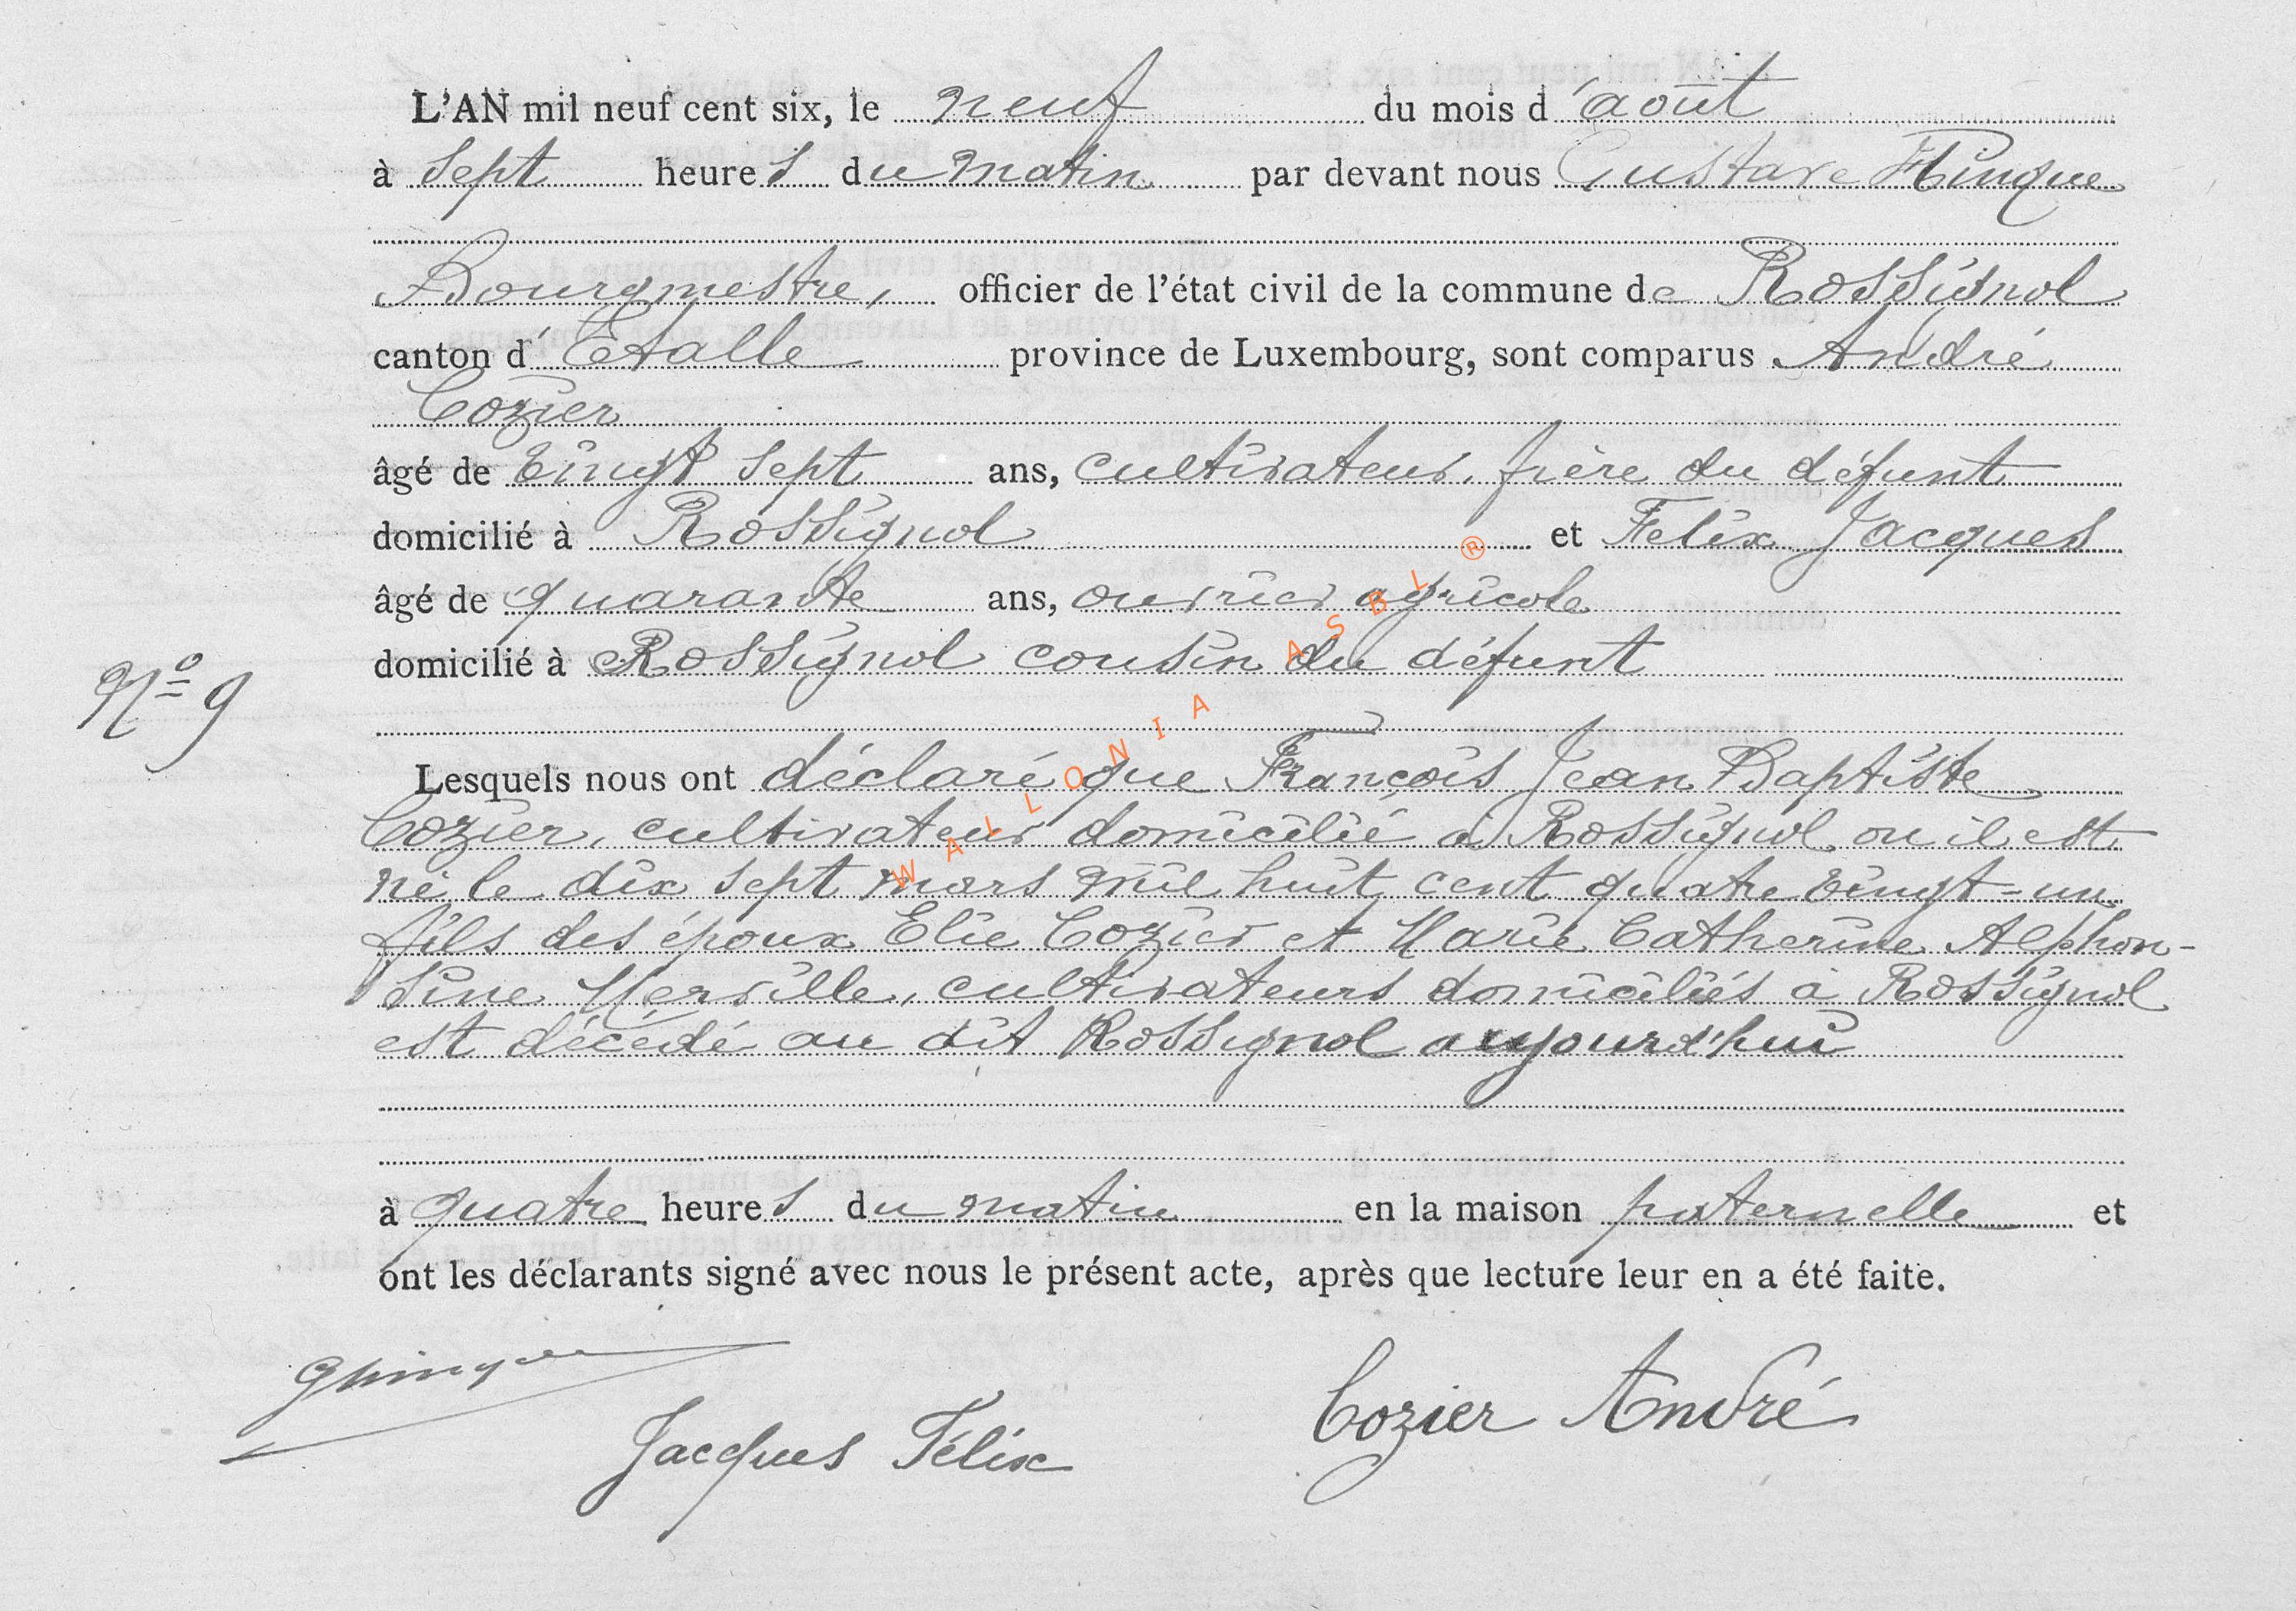 L'AN mil neuf cent six, le neuf du mois d'août
à sept heures du matin par devant nous Gustave Hinque
Bourgmestre, officier de l'état civil de la commune de Rossignol
canton d'Etalle province de Luxembourg, sont comparus André
Cozier
âgé de vingt sept ans, cultivateur, frère du défunt
domicilié à Rossignol et Felix Jacques
âgé de quarante ans, ouvrier agricole
domicilié à Rossignol cousin du défunt
N° 9
Lesquels nous ont déclaré que François Jean Baptiste
Cozier, cultivateur domicilié à Rossignol ou il est
né le dix sept mars mil huit cent quatre vingt-un
fils des époux Elie Cozier et Marie Catherine Alphon-
sine Merville, cultivateurs domiciliés à Rossignol
est décédé au dit Rossignol aujourd'hui
à quatre heures du matin en la maison paternelle et
ont les déclarants signé avec nous le présent acte, après que lecture leur en a été faite.
GHinque
Jacques Félix
Cozier André
WALLONIA ASBL ®